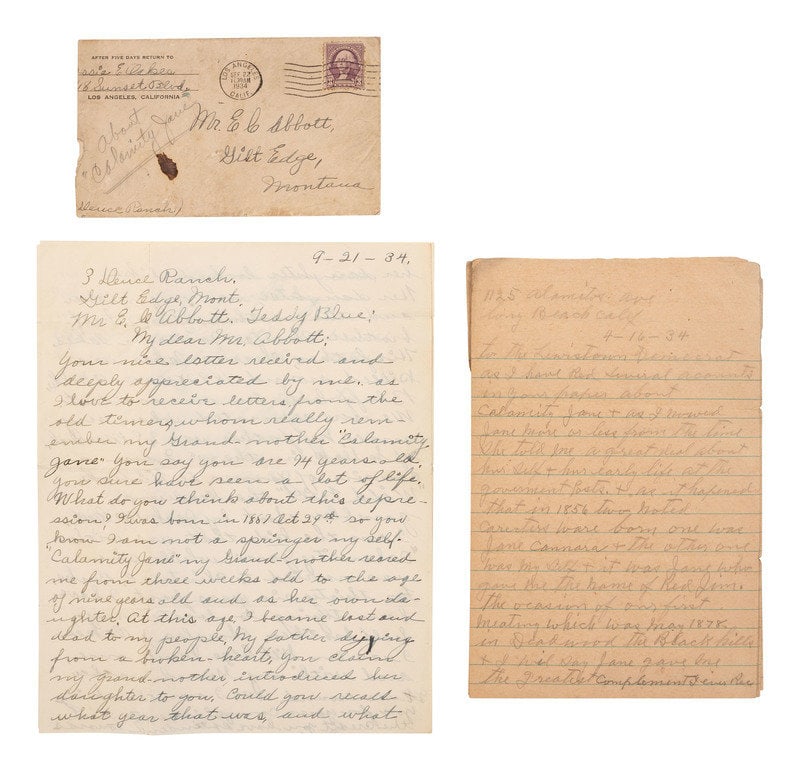 AFTER FIVE DAYS RETURN TO
Sunset Blvd.
LOS ANGELES, CALIFORNIA
LOS ANGELES
SEP 22
1934
CALIF.
About
"Calamity Jane"
Mr. E. C. Abbott,
Gilt Edge,
Montana
Deuce Ranch)
9-21-34.
3 Deuce Ranch.
Gilt Edge, Mont.
Mr. E. C. Abbott. Teddy Blue;
My dear Mr. Abbott:
Your nice letter received and
deeply appreciated by me. as
I love to receive letters from the
old timers whom really rem-
ember my Grand mother "Calamity
Jane" You say you are 74 years old,
you sure have seen a lot of life.
What do you think about this depre-
ssion? I was born in Oct 29th so you
know I am not a springer my self-
"Calamity Jane" my Grand-mother reared
me from three weeks old to the age
of nine years old and as her own da-
ughter. At this age, I became lost and
dead to my people, My father dying
from a broken-heart, you claim
my grand-mother introduced her
daughter to you. Could you recall
what year that was, and what
1125 Alamitos. ave
Long Beach Calif
4-16-34
to the Lewistown Democrat
as I have Red Sevral acounts
in your paper about
Calamity Jane + as I
Jane More or less from the time
She told me a great deal about
her Self + her early life at the
goverment Posts. + as it hapened
That in 1856 two Noted
Carecters ware born one was
Jane Cannara + the other one
was My Self + it was Jane who
gave Me the Name of Red Jim.
the ocasion of our first
Meating which was May 1878
in Deadwood the Black hills
+ I wil say Jane gave me
the Greatest Complement I ever